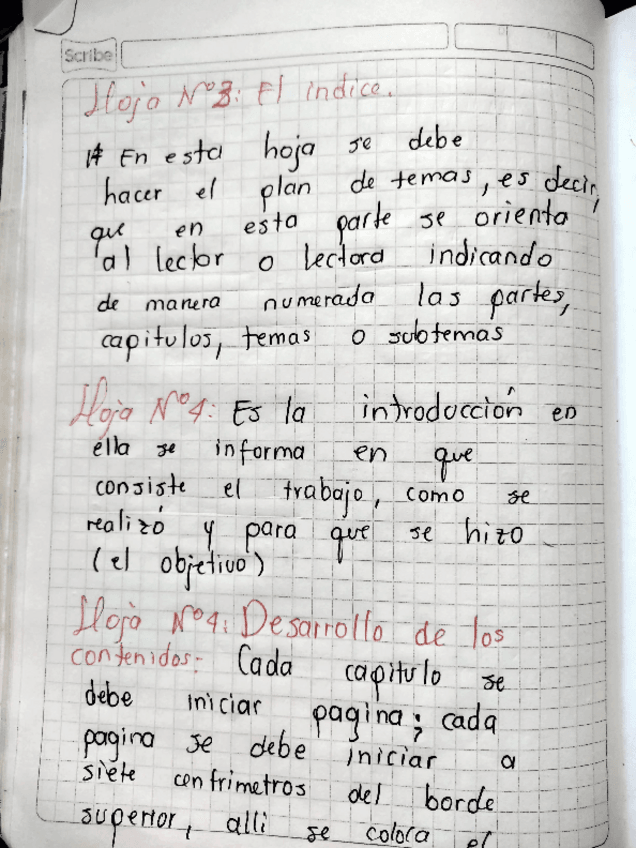 Scribe
Hoja N°3: El indice.
En esta hoja se debe
hacer el plan de temas, es decir,
que en esta parte se orienta
al lector o lectora indicando
de manera numerada las partes,
capitulos, temas o subtemas
Hoja N°4: Es la introducción en
ella se informa en que
consiste el trabajo, como se
realizó y para que se hizo
(el objetivo)
Hoja N°4: Desarrollo de los
contenidos: Cada capitulo se
debe iniciar pagina; cada
pagina se debe iniciar a
siete centrimetros del borde
superior, alli se coloca el